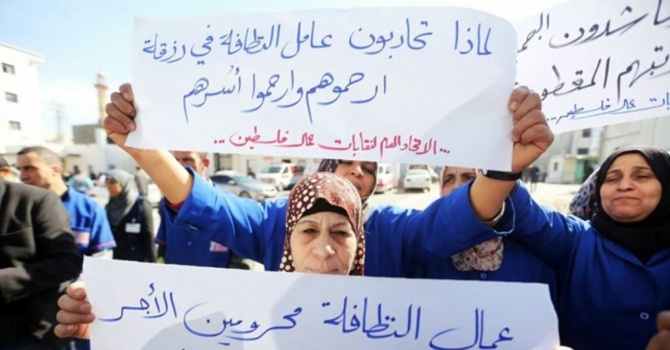 لماذا تحاربون عامل النظافة في رزقة
ارحموهم وارحموا أسرهم
... الاتحاد العام لنقابات عمال فلسطين ...
يناشدون
المقطو
عمال فلسطين
عمال النظافة محرومين الأجر